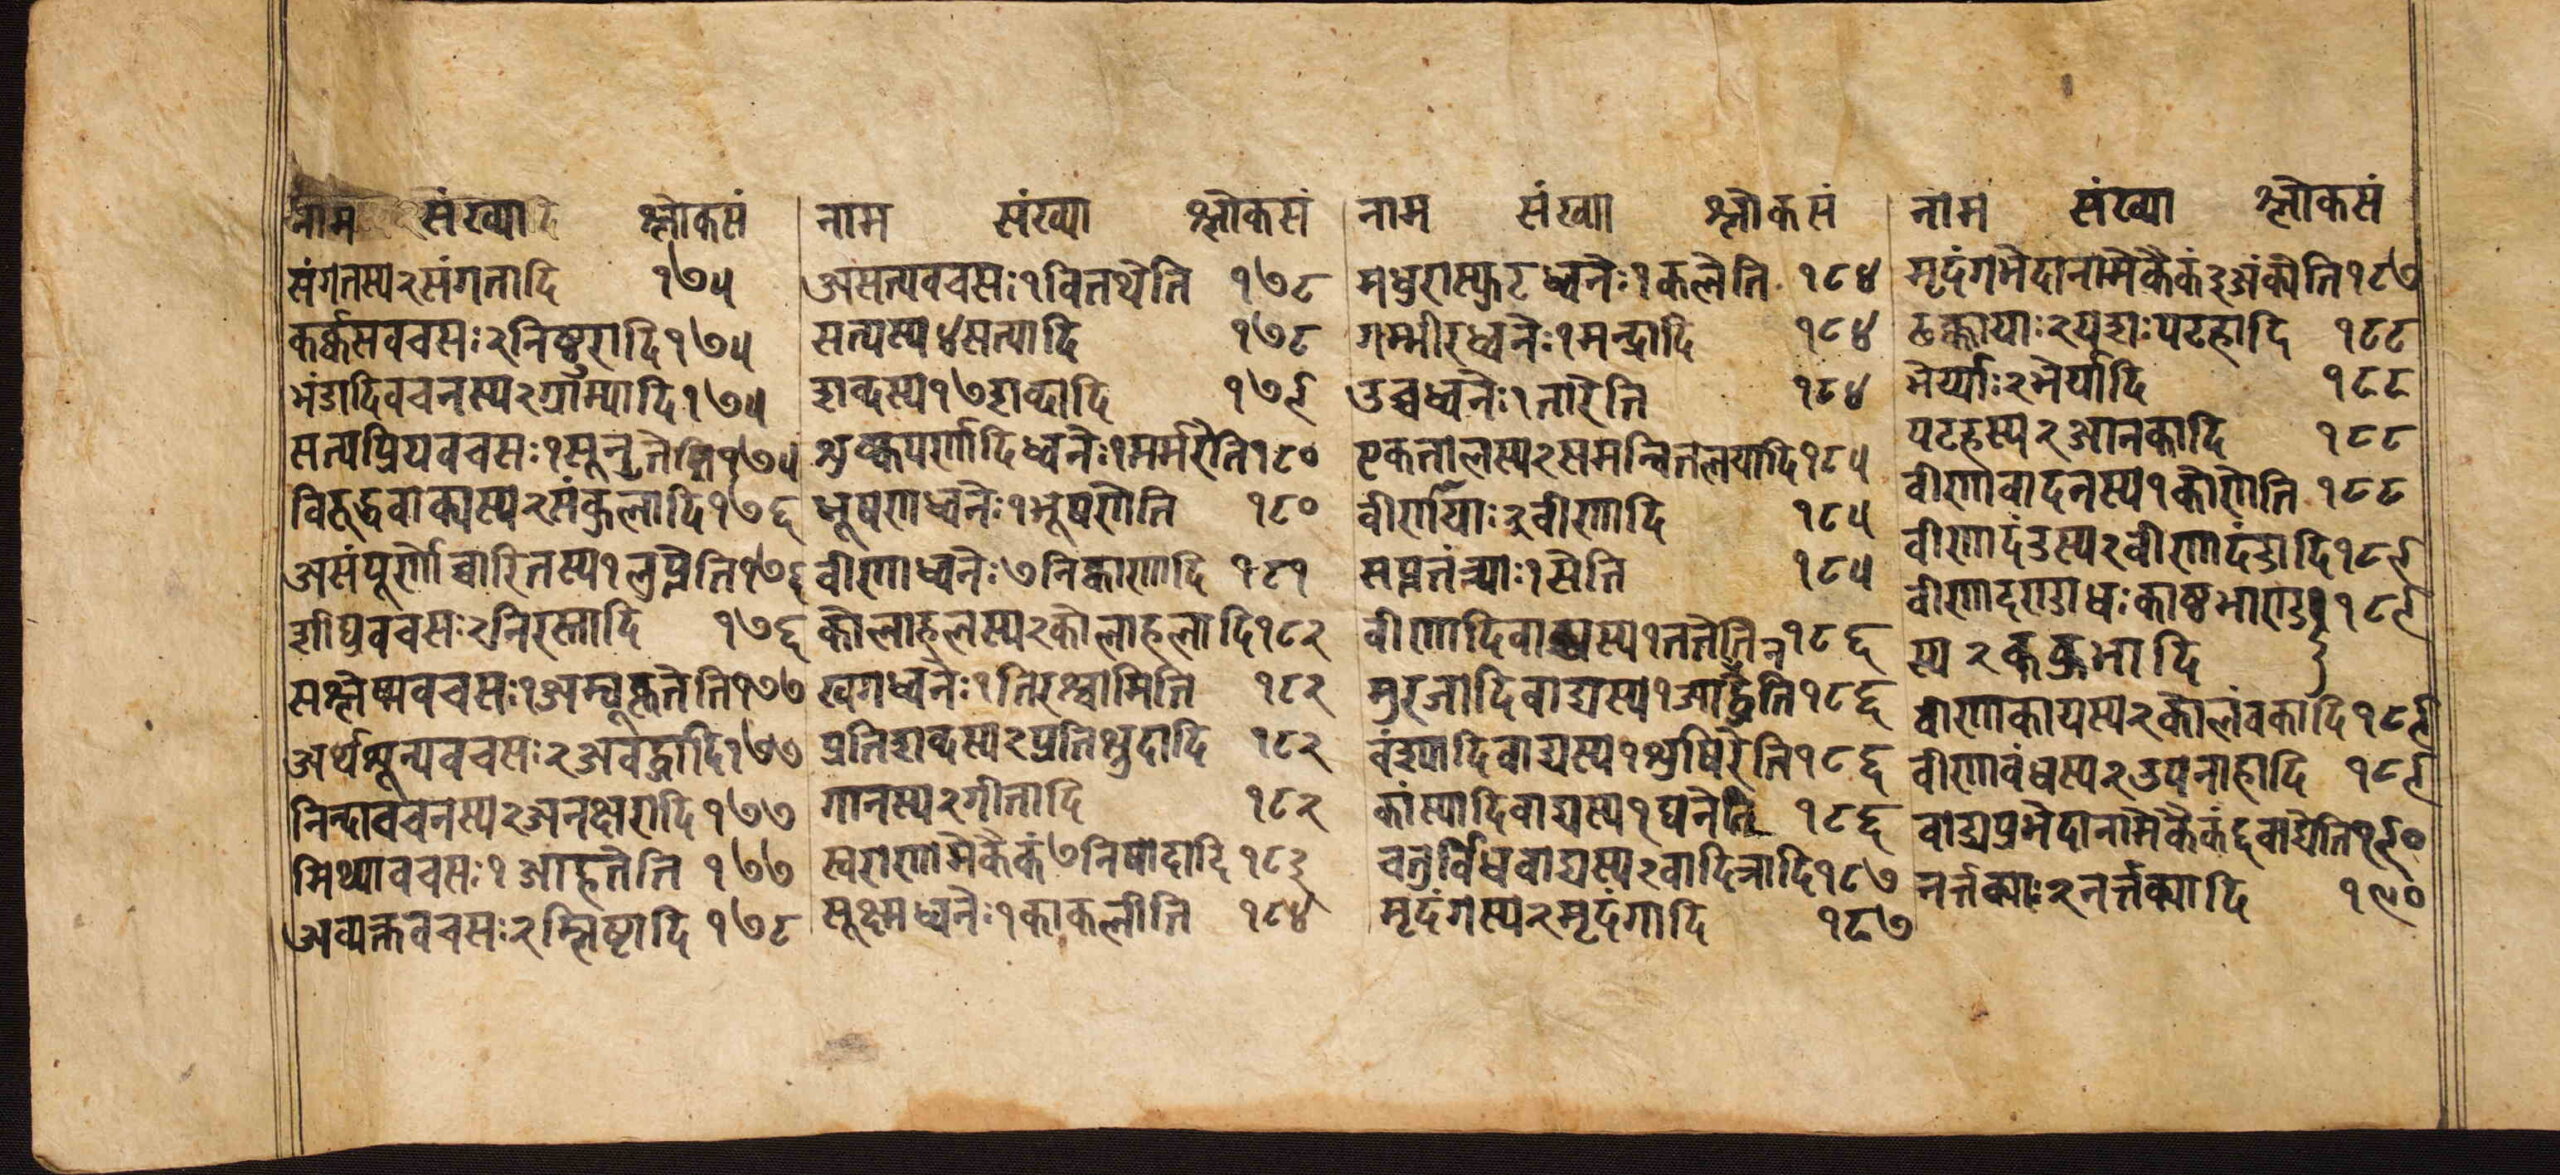 नाम संख्या श्लोकसं
संगतस्य२संगतादि १७५
कर्कसवचसः२निष्ठुरादि१७५
भंडादिवचनस्य२ग्राम्यादि१७५
सत्यप्रियवचसः१सूनृतेति१७५
विरुद्धवाक्यस्य२संकुलादि१७६
असंपूर्णोच्चारितस्य१लुप्तेति१७६
शीघ्रवचसः२निरस्तादि १७६
सश्लेष्मवचसः१अम्बूकृतेति१७७
अर्थशून्यवचसः२अवद्धादि१७७
निन्दावचनस्य२अनक्षरादि१७७
मिथ्यावचसः१आहतेति १७७
अव्यक्तवचसः२म्लिष्टादि १७८
नाम संख्या श्लोकसं
असत्यवचसः१वितथेति १७८
सत्यस्य४सत्यादि १७८
शब्दस्य१७शब्दादि १७९
शुष्कपर्णादिध्वनेः१मर्मरेति१८०
भूषणध्वनेः१भूषणेति १८०
वीणाध्वनेः७निक्काणादि १८१
कोलाहलस्य२कोलाहलादि१८२
खगध्वनेः१तिरश्चामिति १८२
प्रतिशब्दस्य२प्रतिश्रुदादि १८२
गानस्य२गीतादि १८२
स्वराणामेकैकं७निषादादि १८३
सूक्ष्मध्वनेः१काकलीति १८४
नाम संख्या श्लोकसं
मधुरास्फुटध्वनेः१कलेति १८४
गम्भीरध्वनेः१मन्द्रादि १८४
उच्चध्वनेः१तारेति १८४
एकतालस्य२समन्वितलयादि१८५
वीणायाः३वीणादि १८५
सप्ततंत्र्याः१सेति १८५
वीणादिवाद्यस्य१ततेति १८६
मुरजादिवाद्यस्य१आनद्धेति१८६
वंश्यादिवाद्यस्य१शुषिरेति१८६
कांस्यादिवाद्यस्य१घनेति १८६
चतुर्विधवाद्यस्य२वादित्रादि१८७
मृदंगस्य२मृदंगादि १८७
नाम संख्या श्लोकसं
मृदंगभेदानामेकैकं३अंक्येति१८७
ढक्कायाः२यशःपटहादि १८८
भेर्य्याः२भेर्यादि १८८
पटहस्य२आनकादि १८८
वीणावादनस्य१कोणेति १८८
वीणादंडस्य२वीणादंडादि१८९
वीणादण्डाधःकाष्ठभाण्ड १८९
स्य२ककुभादि
वीणाकायस्य२कोलंवकादि१८९
वीणावंधस्य२उपनाहादि १८९
वाद्यप्रभेदानामेकैकं६वाद्येति१९०
नर्त्तक्याः२नर्त्तक्यादि १९०